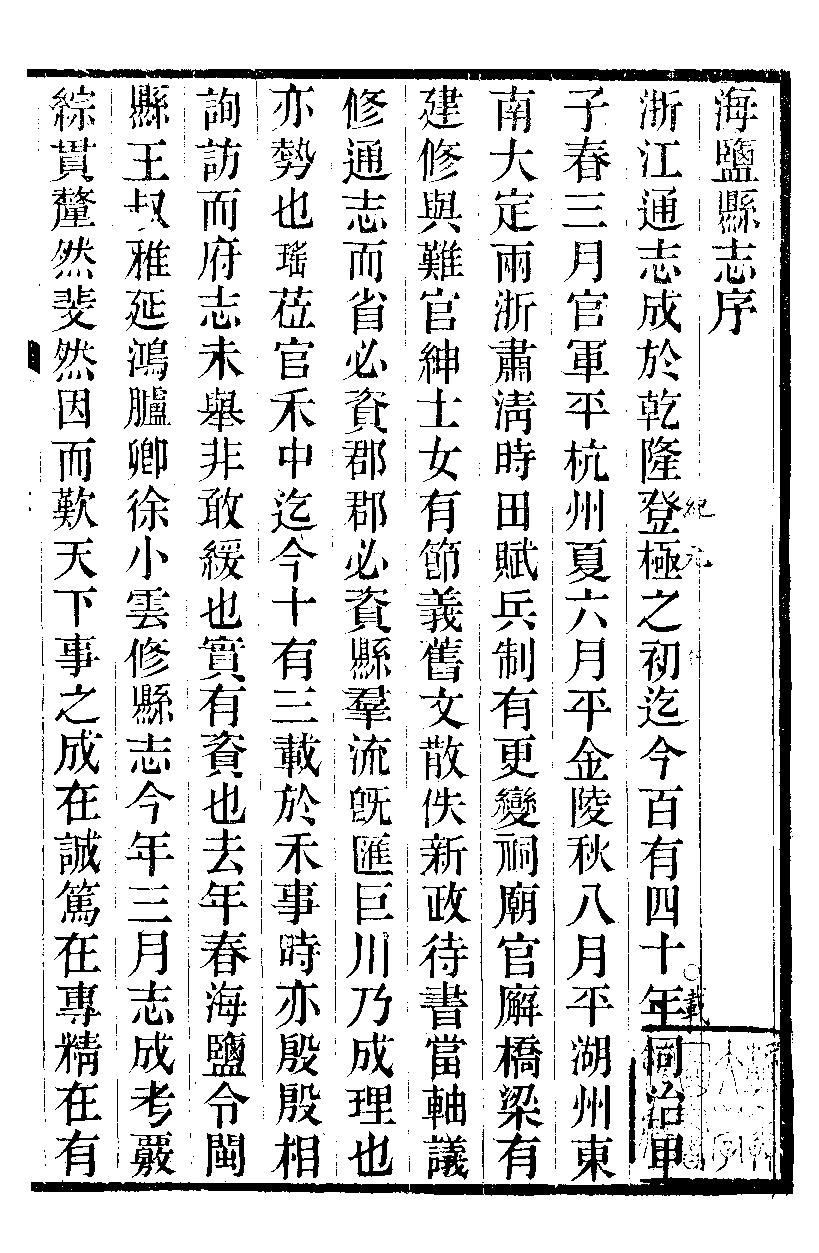 海鹽縣志序
浙江通志成於乾隆登極之初迄今百有四十年同治甲
子春三月官軍平杭州夏六月平金陵秋八月平湖州東
南大定兩浙肅淸時田賦兵制有更變祠廟官廨橋梁有
建修與難官紳士女有節義舊文散佚新政待書當軸議
修通志而省必資郡郡必資縣羣流旣匯巨川乃成理也
亦勢也瑤莅官禾中迄今十有三載於禾事時亦殷殷相
詢訪而府志未舉非敢緩也實有資也去年春海鹽令閩
縣王叔雅延鴻臚卿徐小雲修縣志今年三月志成考覈
綜貫釐然斐然因而歎天下事之成在誠篤在專精在有
紀元
載